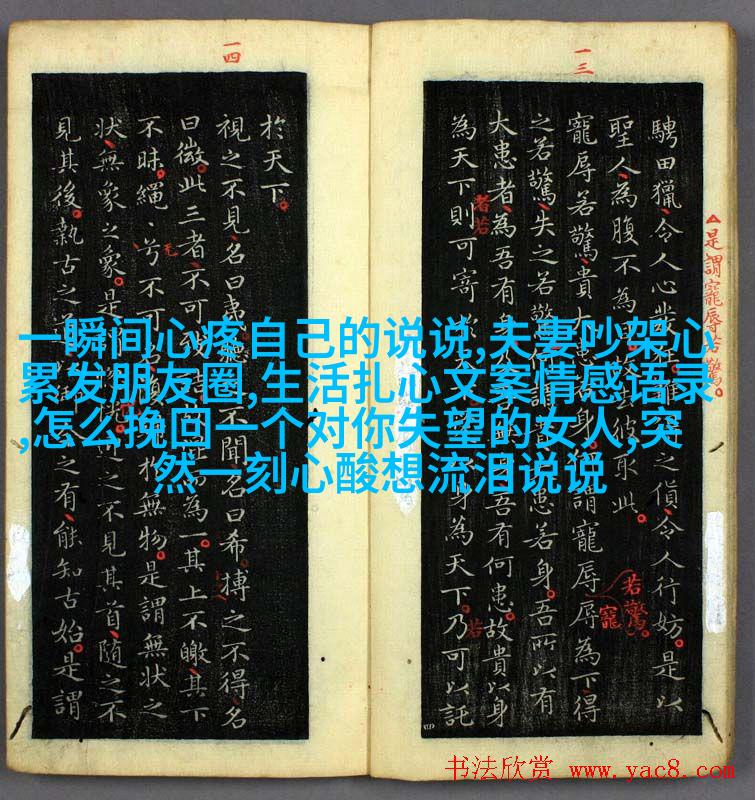 一瞬间心疼自己的说说,夫妻吵架心
累发朋友圈,生活扎心文案情感语录
,怎么挽回一个对你失望的女人,突
然一刻心酸想流泪说说
一三
△是謂寵辱若驚。
騁田獵令人心發之貨令人行妨。是以
聖人為腹不為目故去彼取此。
寵辱若驚貴大患身謂寵辱辱為下得
之若驚失之若驚謂貴患若身。吾所以有
大患者為吾有身及身吾有何患。故貴以身
為天下則可寄身為天下。乃可以託
者若
若驚。
寵
若
一四
於天下。
視之不見名曰夷不聞名曰希搏之不得名
曰微。此三者不可為一。其上不皦其下
不昧。繩〻兮不可名物。是謂無狀之
狀無象之象。是之不見其首隨之不
見其後。執古之道今之有。能知古始。是謂
书法欣赏 www.yac8.com